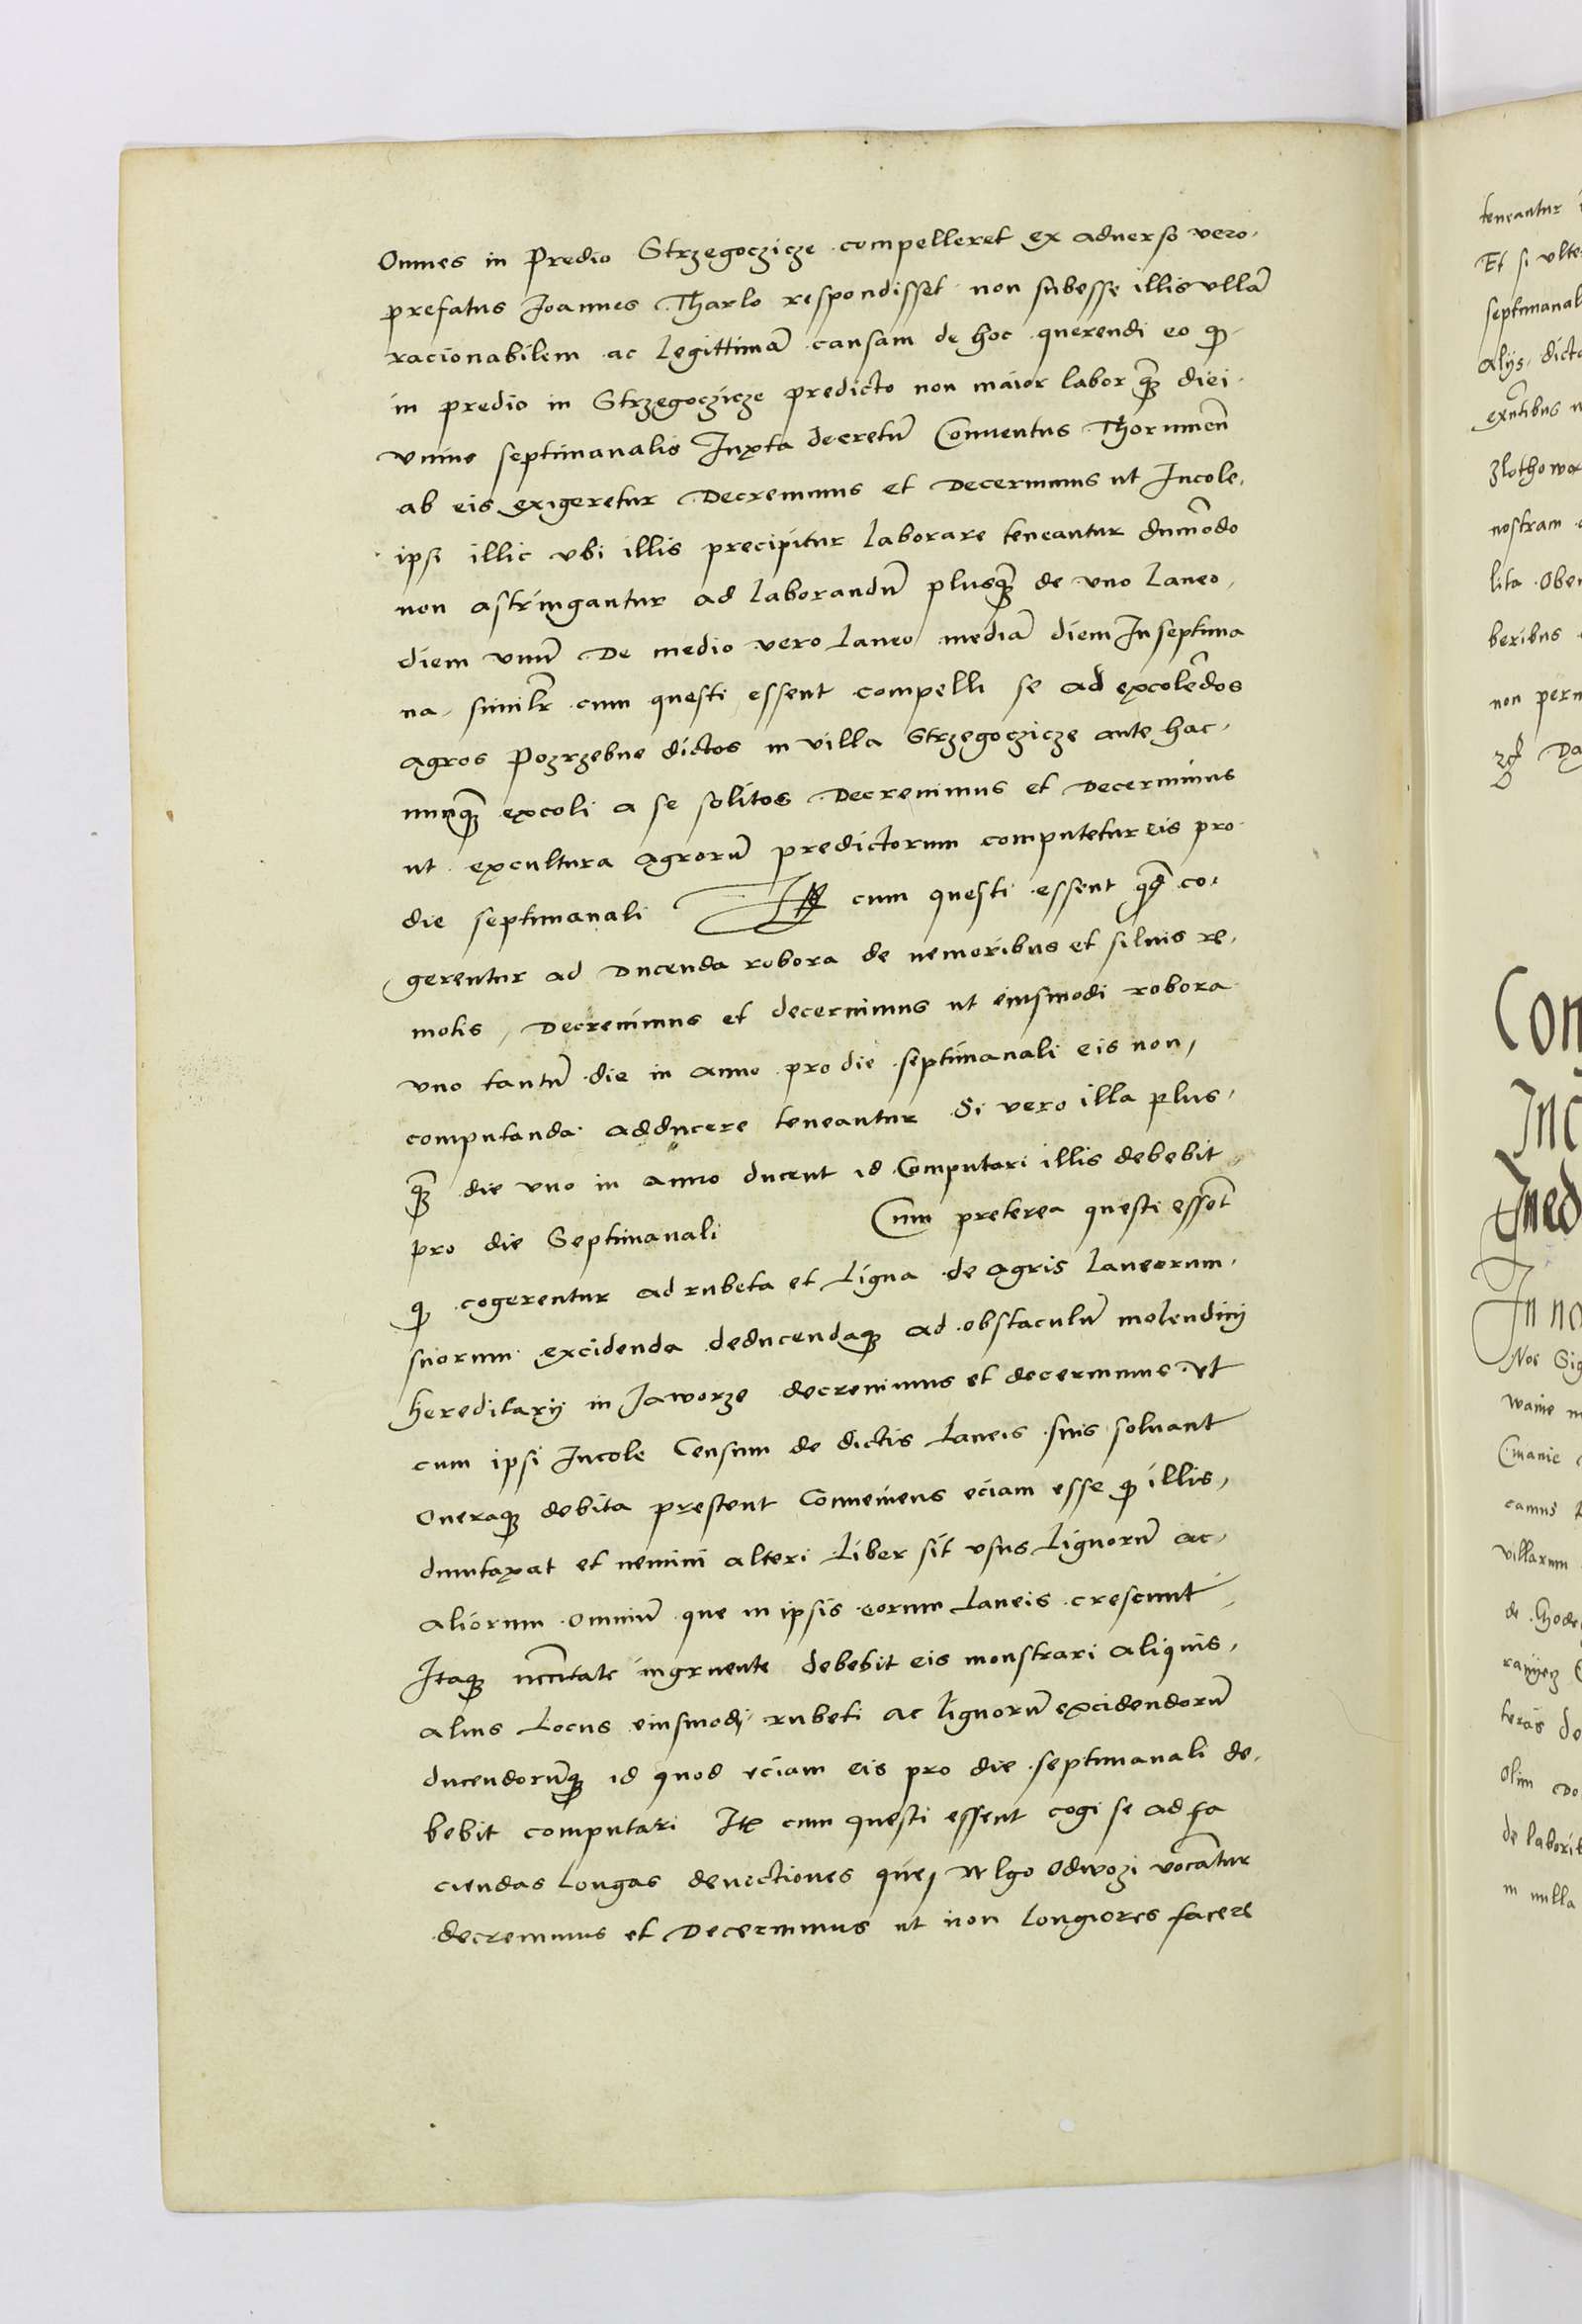 Omnes in Predio Strzegoczicze compelleret ex aduerso vero
prefatus Joannes Tharlo respondisset non subesse illis vllā
racionabilem ac legittimā causam de hoc querendi eo qȝ
in predio in Strzegoczicze predicto non maior labor qȝ̄ diei
vnius septimanalis Juxta decretū Conuentus Thorunien̄
ab eis exigeretur Decreuimus et Decernimus ut Incole
ipsi illic vbi illis precipitur laborare teneantur dum̄odo
non astringantur ad laborandū plusqȝ̄ de vno laneo
diem vnū De medio vero laneo mediā diem In septima
na, similr̄ cum questi essent compelli se ad excolēdos
agros Pozrzebne dictos in villa Strzegoczicze ante hac
nunqȝ̄ excoli a se solitos Decreuimus et Decernimus
ut excultura agrorū predictorum computetur eis pro
die septimanali It̄ cum questi essent qd̄ co,
gerentur ad Ducenda robora de nemoribus et siluis re,
motis, Decreuimus et decernimus ut eiusmodi robora
vno tantū die in anno pro die septimanali eis non,
computanda adducere teneantur Si vero illa plus,
qȝ̄ die vno in anno ducent id Computari illis debebit
pro die Septimanali Cum preterea questi essēt
qȝ cogerentur ad rubeta et Ligna de agris laneorum,
suorum excidenda deducendaqȝ ad obstaculū molendinij
hereditarij in Jaworze decreuimus et decernimus vt
cum ipsi Incole Censum de dictis laneis suis soluant
Oneraqȝ debita prestent Conueniens eciam esse qȝ illis,
dumtaxat et nemini alteri Liber sit vsus Lignorū ac
aliorum omniū que in ipsis eorum laneis crescunt
Itaqȝ nccītate ingruente debebit eis monstrari aliquis,
alius Locus eiusmodi rubeti ac lignorū excidendorū
ducendorūqȝ id quod eciam eis pro die septimanali de,
bebit computari It̄ cum questi essent cogi se ad fa
ciendas longas deuectiones que, vulgo Odwozi vocātur
decreuimus et Decernimus ut non longiores facere
teneantur
Et si vlte
septimanal
alijs, dicto
exn̄tibus
nostram
lita
beribus
non pern
Con
Inc
In no
Nos Sig
camus
villarum
de
teras do
Olim
de labori
in nulla